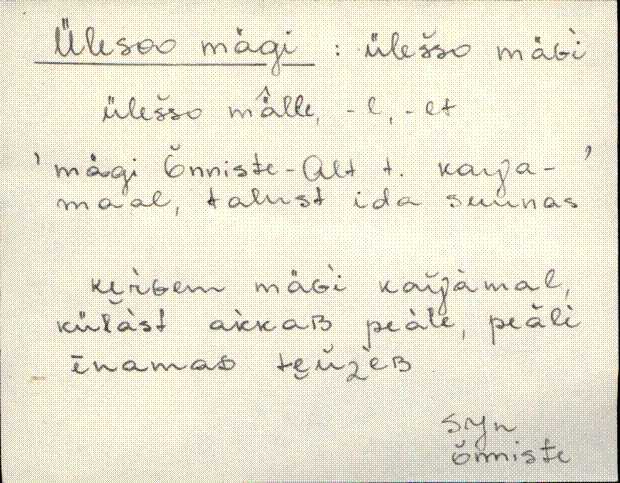 Ülesoo mägi : ülešso mäʙì
ülešso mä̂lle, -l, -lt
'mägi Õnniste-Alt t. karja-'
maal, talust ida suunas
mäʙì kaŕjàmal,
külàst akkaʙ peàle, peäl̀i
ēnamas
Syn
Õnniste